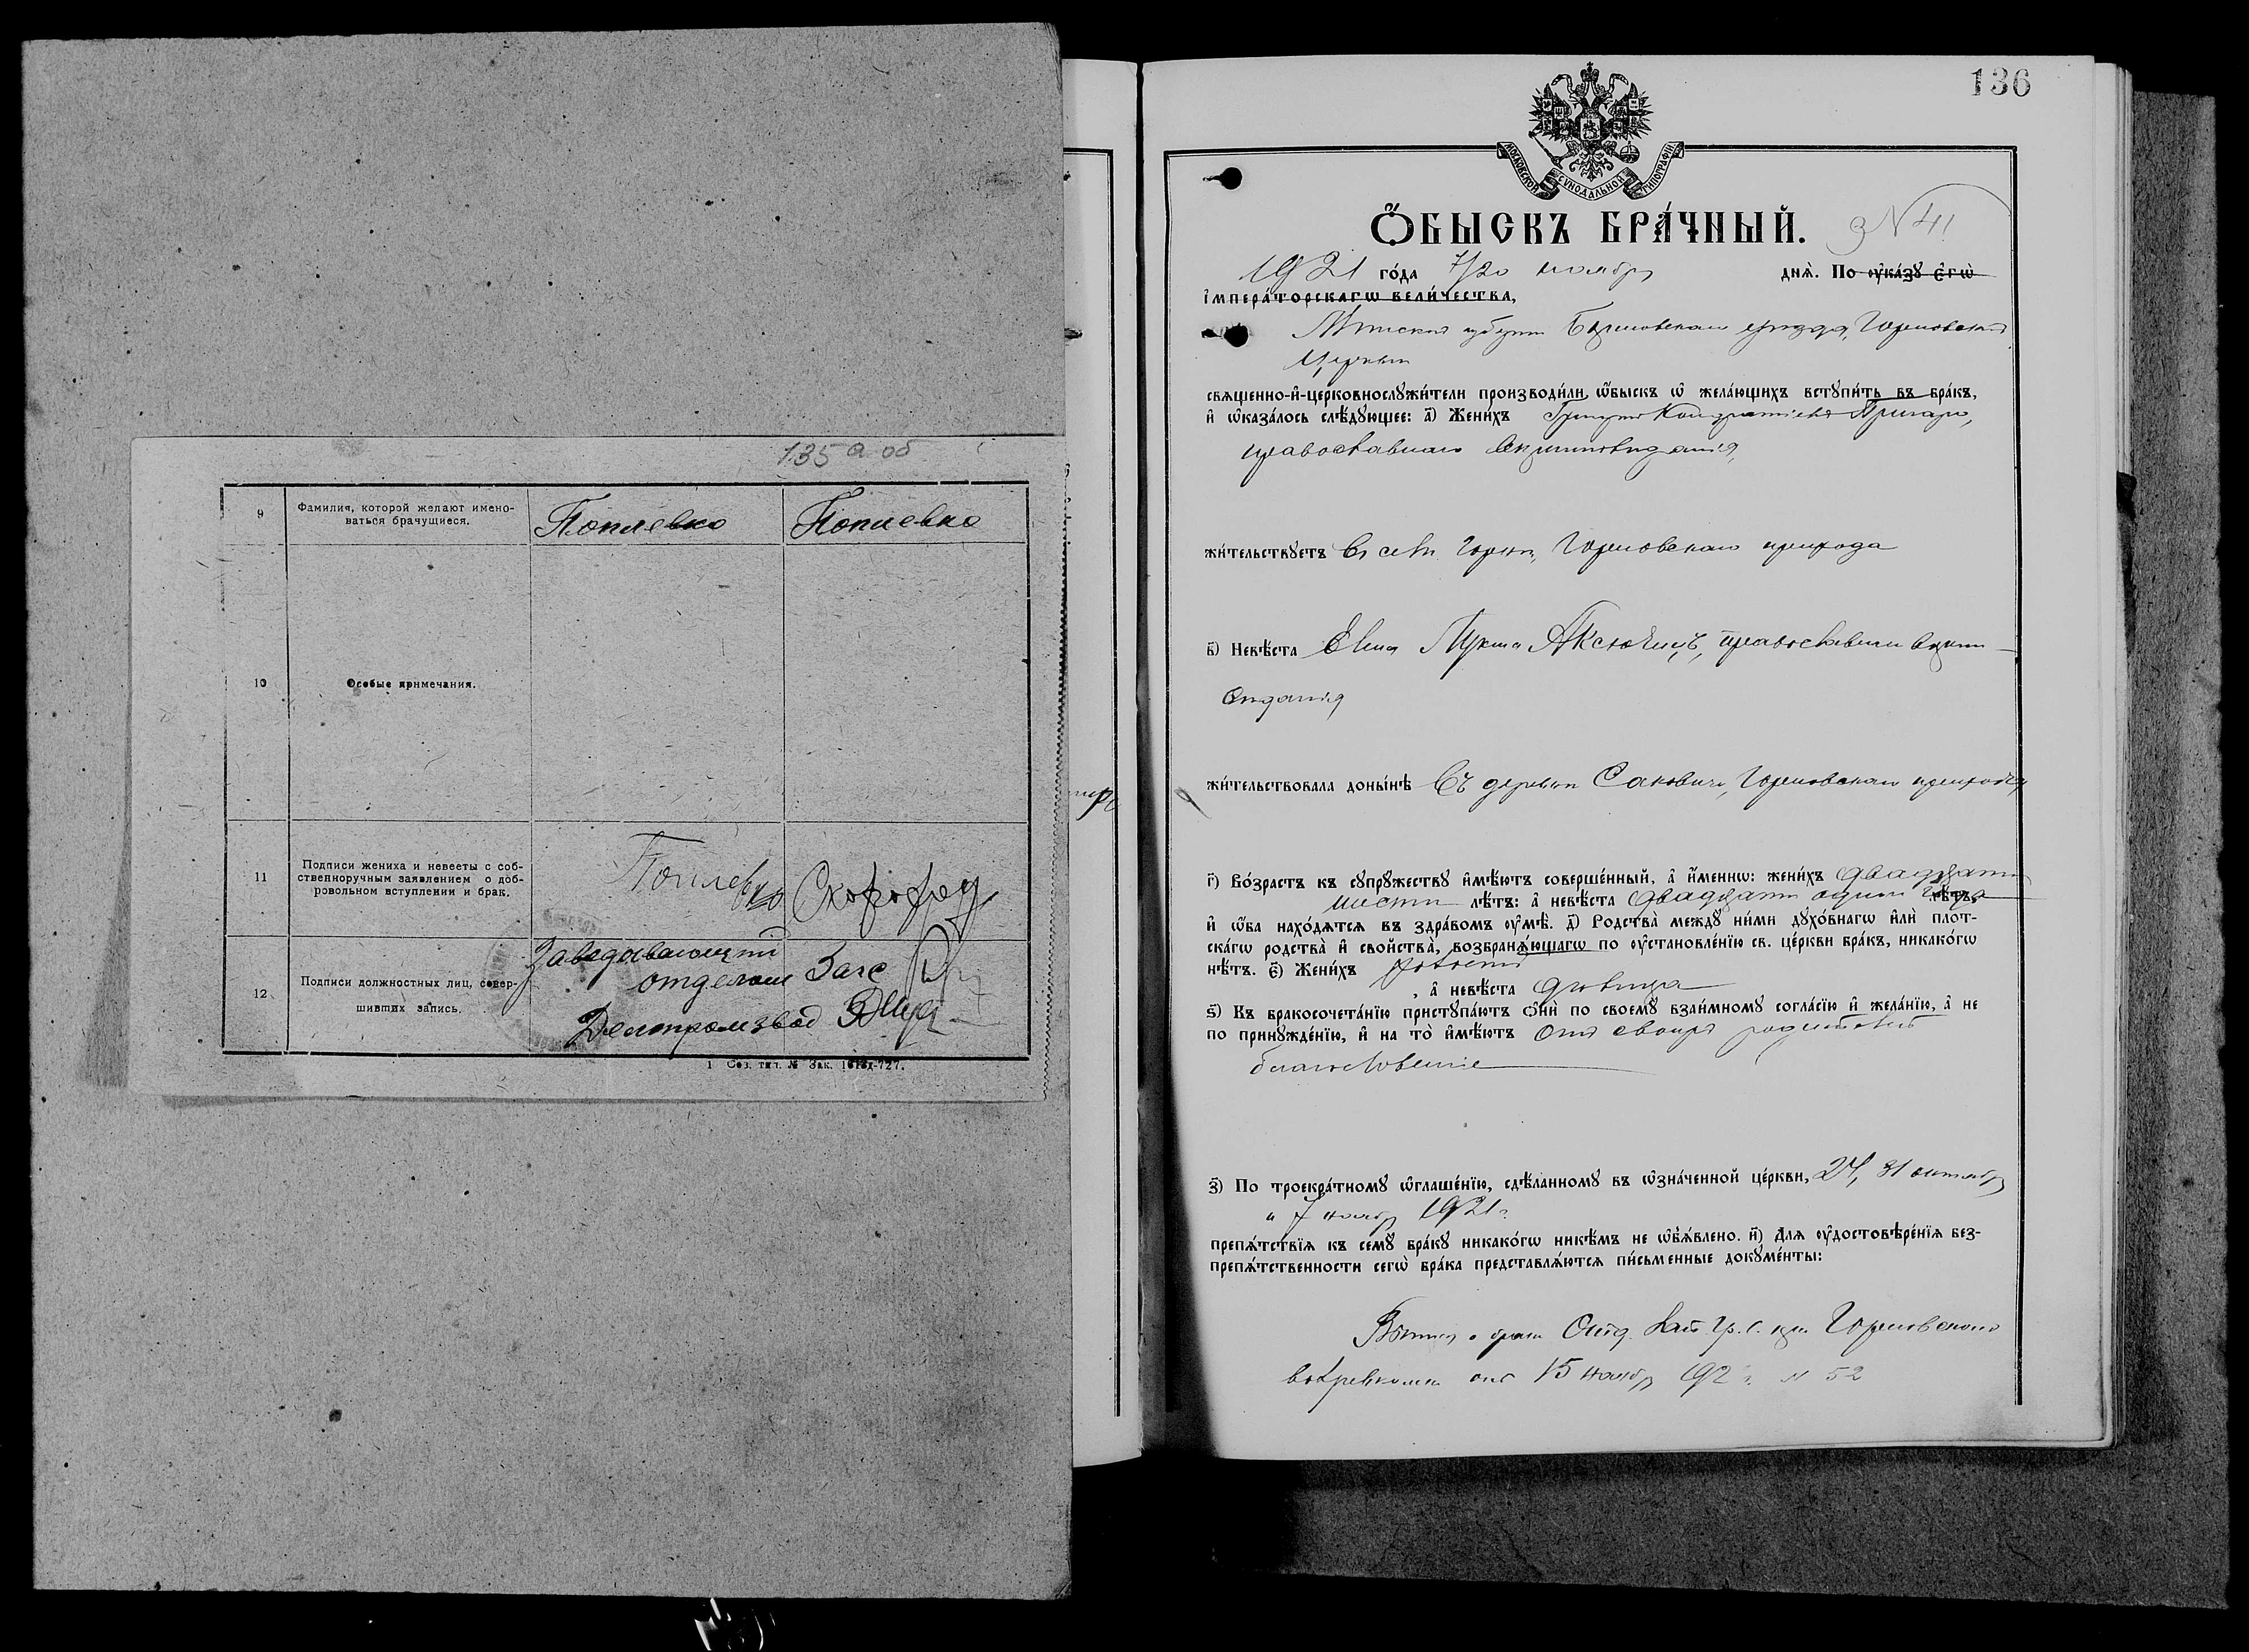 135 а об
9 Фамилия, которой желают имено-
ваться брачущиеся. Поплевко Поплевко
10 Особые примечания.
11 Подписи жениха и невесты с соб-
ственноручным заявлением о доб-
ровольном вступлении и брак. Поплевко Скороход
12 Подписи должностных лиц, совер-
шивших запись.
Заведывающий
отделом Загс
Делопроизвод
136
МОСКОВСКОЙ СѴНОДАЛЬНОЙ ТИПОГРАФІИ
Ѻ҆БЫСКЪ БРА́ЧНЫЙ.
№ 41
1921 го́да 7/20 ноября днѧ̀. По ᲂу҆ка́зꙋ є҆гѡ̀
і҆мпера́торскагѡ вели́чества,
Минской губерни Борисовскаго уезда,
Церкви
свѧщенно-и҆-церковнослꙋжи́тели производи́ли ѡ҆́быскъ ѡ҆ жела́ющихъ встꙋпи́ть въ бра́къ,
и҆ ѡ҆каза́лось слѣ́дꙋющее: а҃) Жени́хъ Григорій Кондратіевъ
православнаго вероисповеданія,
жи́тельствꙋетъ въ селе Горки, прихода
в҃) Невѣ́ста Елена Лукина Аксючицъ, православнаго
жи́тельствовала доны́нѣ въ деревни Саковичи, прихода
г҃) Во́зрастъ къ сꙋпрꙋ́жествꙋ и҆мѣ́ютъ соверше́нный, а҆ и҆́меннѡ: жени́хъ двадцати
шести лѣ́тъ: а҆ невѣ́ста двадцати один года лѣ́тъ,
и҆ ѡ҆́ба нахо́дѧтсѧ въ здра́вомъ ᲂу҆мѣ̀. д҃) Родства̀ междꙋ̀ ни́ми дꙋхо́внагѡ и҆лѝ плот-
ска́гѡ родства̀ и҆ сво́йства̀, возбранѧ́ющагѡ по ᲂу҆становле́нїю св. це́ркви бра́къ, никако́гѡ
нѣ́тъ. є҃) Жени́хъ холостъ
, а҆ невѣ́ста девица
ѕ҃) Къ бракосочета́нїю пристꙋпа́ютъ ѻ҆нѝ по своемꙋ̀ взаи́мномꙋ согла́сїю и҆ жела́нїю, а҆ не
по принꙋжде́нїю, и҆ на то̀ и҆мѣ́ютъ отъ своихъ родителей
благословение
з҃) По троекра́тномꙋ ѡ҆глаше́нїю, сдѣ́ланномꙋ въ ѡ҆зна́ченной це́ркви, 24, 31 октября
и 7 ноября 1921 г.
препѧ́тствїѧ къ семꙋ̀ бра́кꙋ никако́гѡ никѣ́мъ не ѡ҆б̾ѧ́влено. и҃) Длѧ ᲂу҆достовѣре́нїѧ без-
препѧ́тственности сегѡ̀ бра́ка представлѧ́ютсѧ пи́сьменные докꙋме́нты:
Выпись о браке Отд. Зап. Гр. С. при
волревкоме от 15 ноября 192 г. № 52
1 Сов. тип. № Зак.